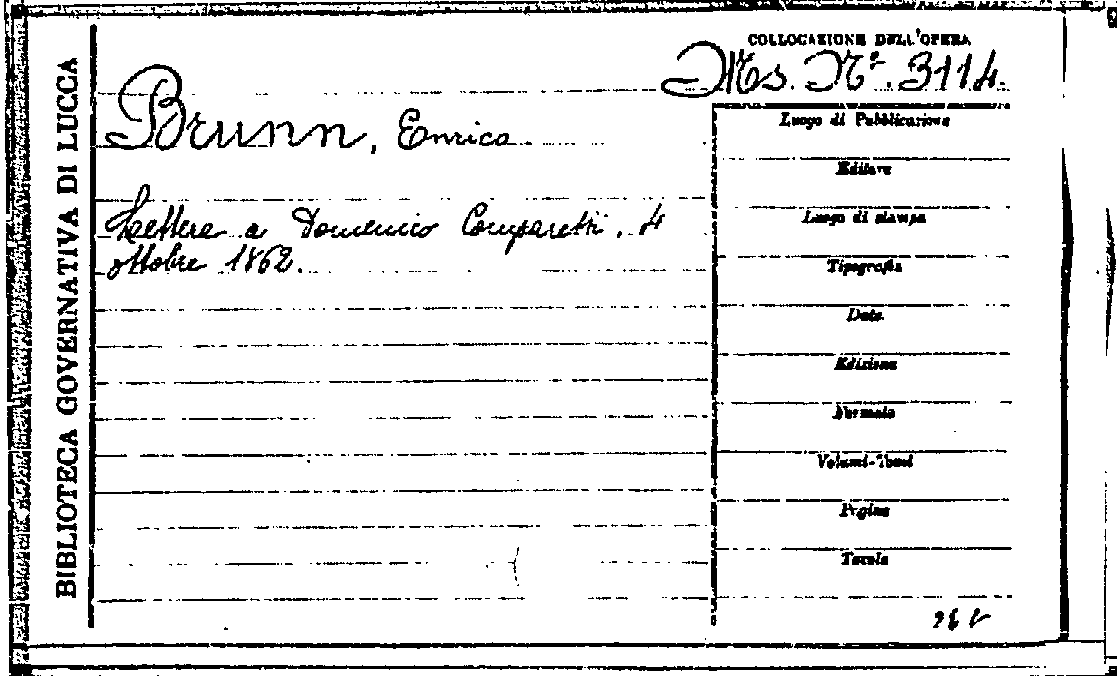 BIBLIOTECA GOVERNATIVA DI LUCCA
COLLOCAZIONE DELL'OPERA
Ms. N.º 3114.
Brunn, Enrico
Lettera a Domenico Comparetti. 4
ottobre 1862.
Luogo di Pubblicazione
Editore
Luogo di stampa
Tipografia
Data
Edizione
Formato
Volumi-Tomi
Pagine
Tavole